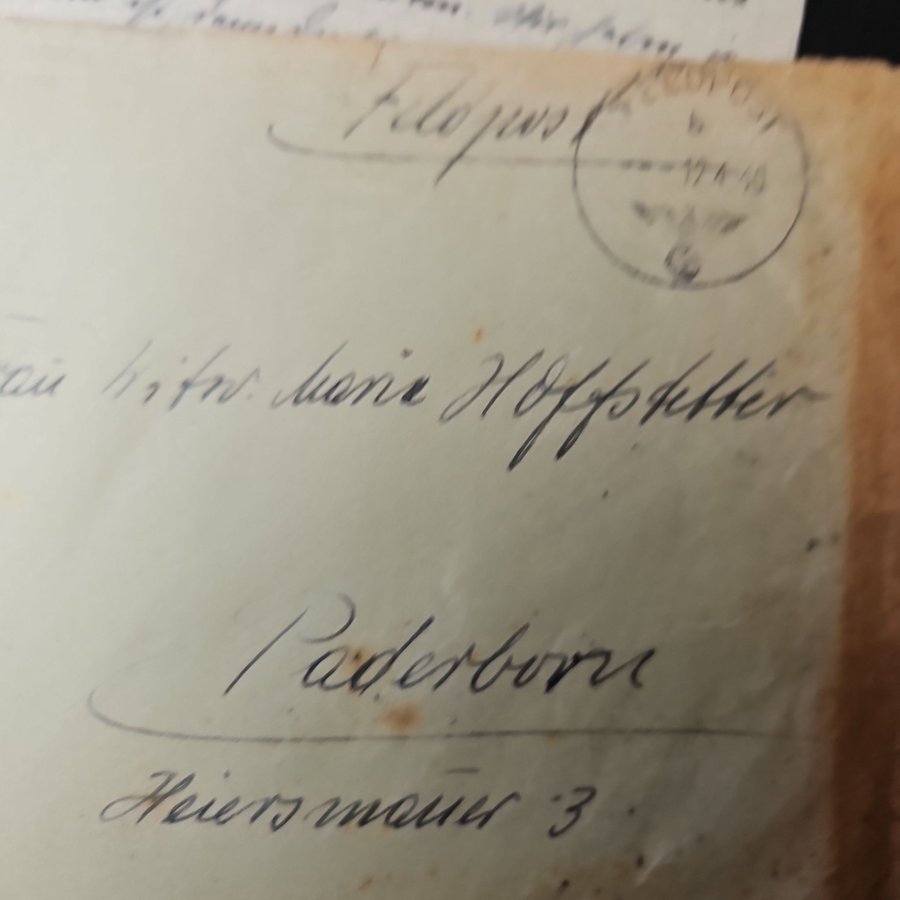 Feldpost
FELDPOST
b
12.4.40
Witw. Maria Hoffstetter
Paderborn
Heiersmauer 3